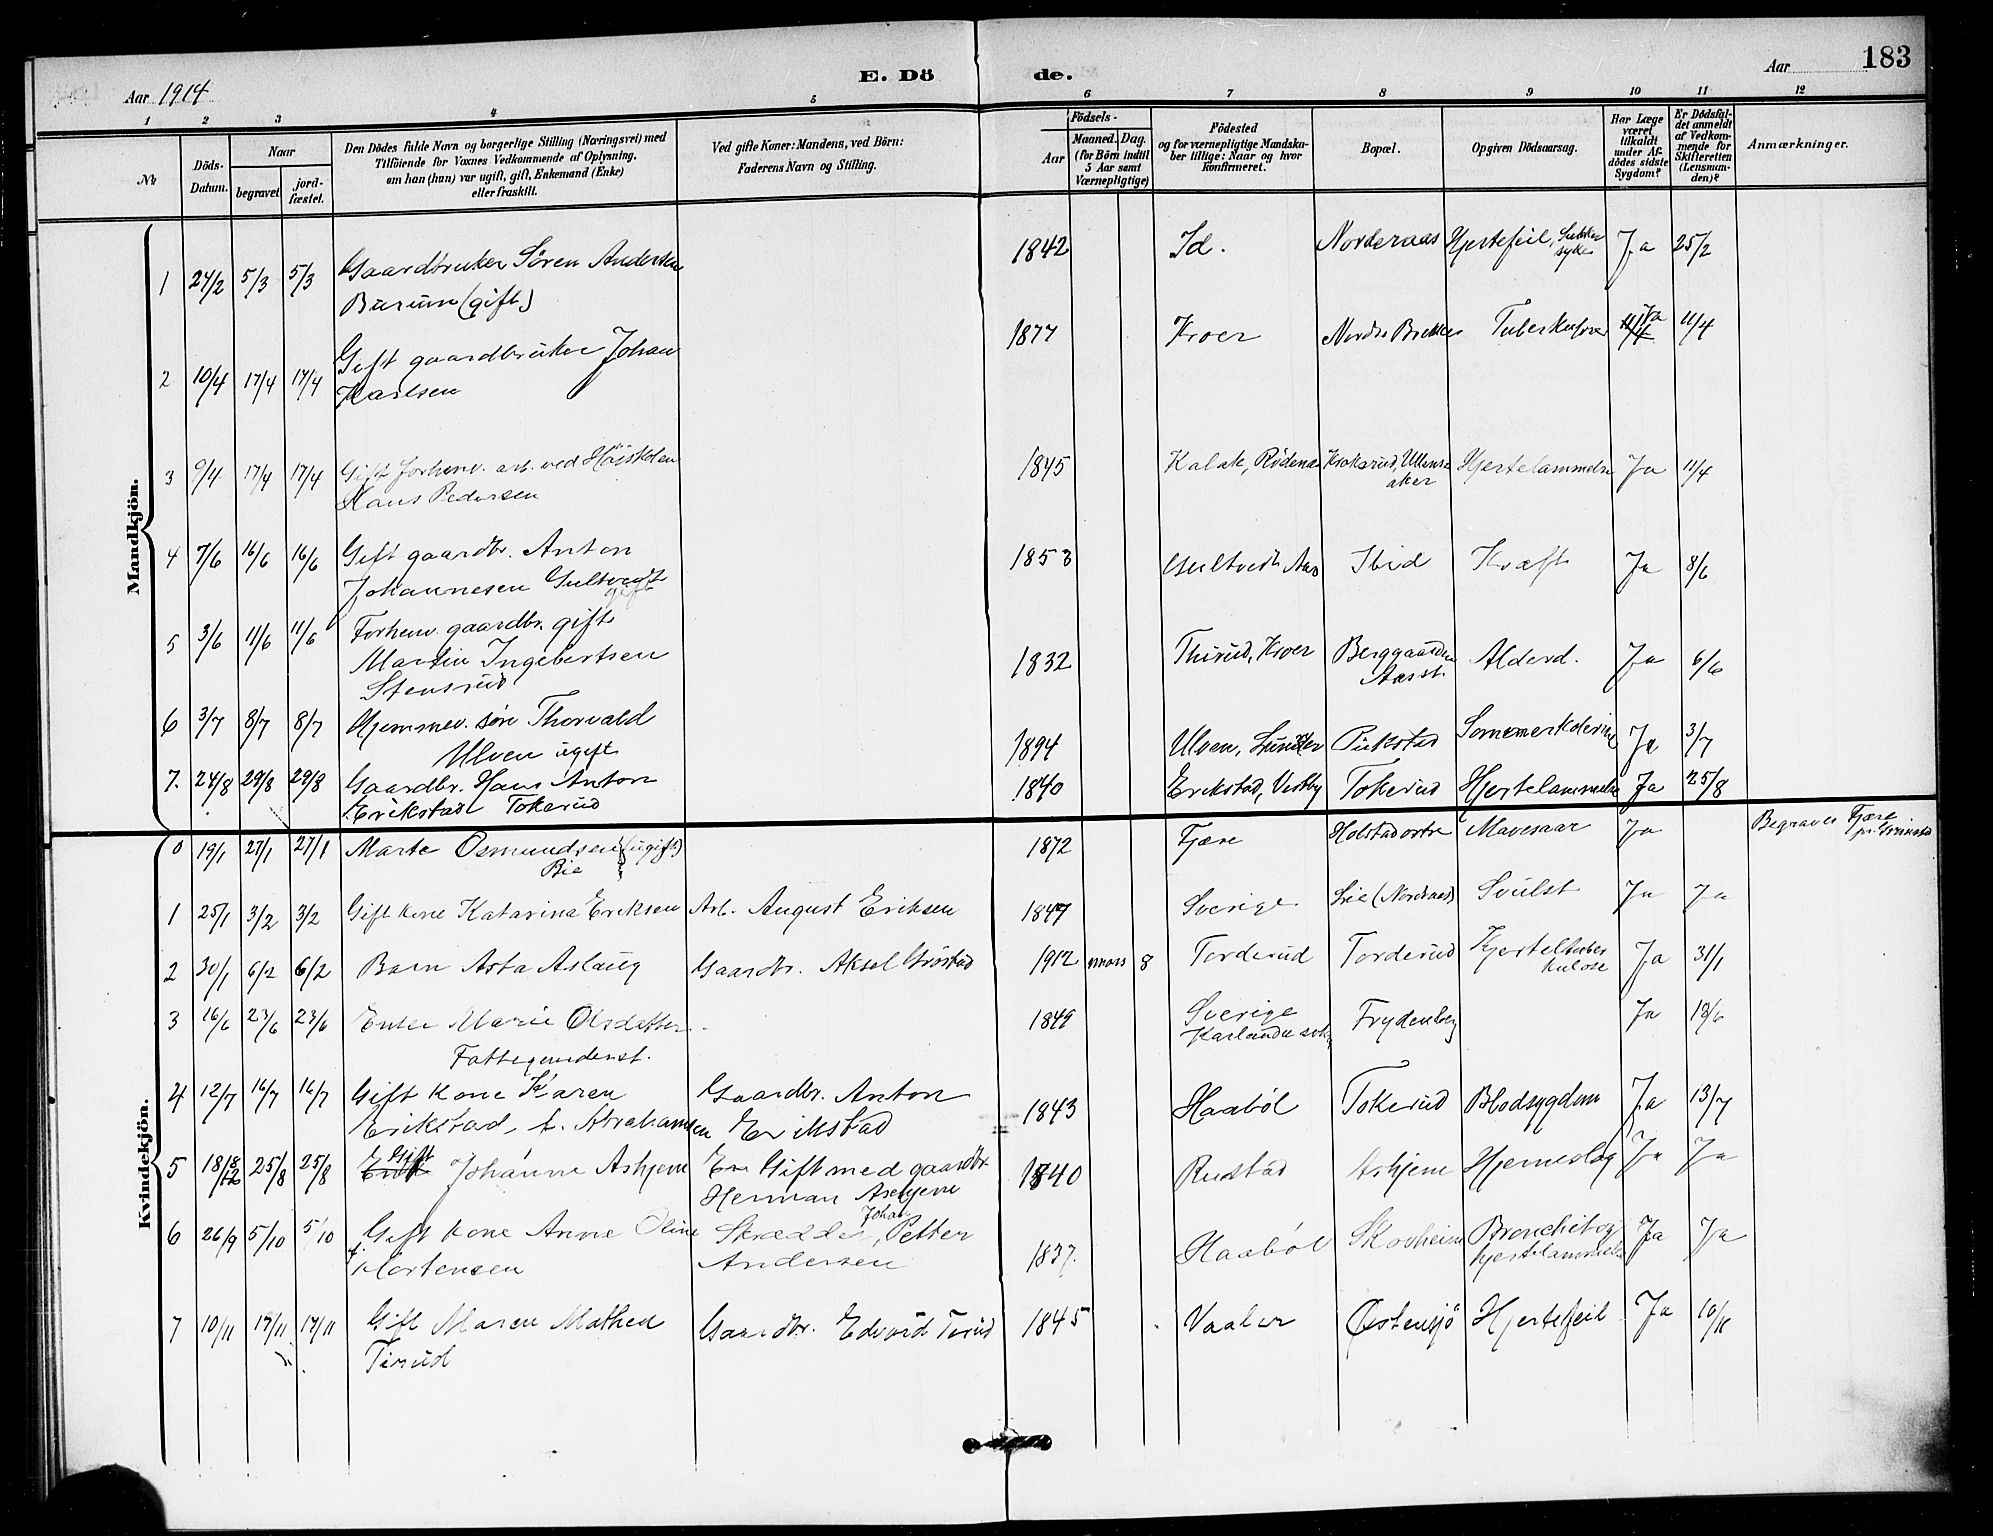 183
E. Dö de.
Aar 1914
Aar
1 2 3 4 5 6 7 8 9 10 11 12
№
Döds-Datum.
Naar
begravet
jord-fæstet.
Den Dödes fulde Navn og borgerlige Stilling (Næringsvei) med
Tilföiende for Voxnes Vedkommende af Oplysning,
om han (hun) var ugift, gift, Enkemand (Enke)
eller fraskilt.
Ved gifte Koner: Mandens, ved Börn:
Faderens Navn og Stilling.
Födsels-
Aar
Maaned. Dag.
(for Börn indtil
5 Aar samt
Værnepligtige)
Födested
og for værnepligtige Mandska-
ber tillige: Naar og hvor
konfirmeret.
Bopæl.
Opgiven Dödsaarsag.
Har Læge
været
tilkaldt
under Af-
dödes sidste
Sygdom?
Er Dödsfal-
det anmeldt
af Vedkom-
mende for
Skifteretten
(Lensman-
den)?
Anmærkninger.
Mandkjön.
1 24/2 5/3 5/3 Gaardbruker Sören Andersen 1842 Id. Norderaas Hjertefeil, Sukker 25/2
Burum (gift) syke Ja
2 10/4 17/4 17/4 Gift gaardbruker Johan 1877 Kroer Nordre Brekke Tuberkulose Ja 11/4
Karlsen
3 9/4 17/4 17/4 Gift forhenv. arb. ved Höiskolen 1845 Kalak, Rödenæs Kroksrud, Ullens Hjertelammelse Ja 11/4
Hans Pedersen aker
4 7/6 16/6 16/6 Gift gaardbr. Anton 1853 Gultvedt Aas Ibid Kræft Ja 8/6
Johannesen Gultvedt
gift
5 3/6 11/6 11/6 Forhenv. gaardbr. gift
Martin Ingebertsen 1832 Thirud, Kroer Berggaarden Alderd. Ja 6/6
Stensrud Aas st.
6 3/7 8/7 8/7 Hjemmev. søn Thorvald
Ulven ugift 1894 Ulven, Pirkstad Sommerkolerine Ja 3/7
7. 24/8 29/8 29/8 Gaardbr. Hans Anton 1840 Erikstad, Vestby Tokerud Hjertelammelse Ja 25/8
Erikstad Tokerud
Kvindekjön.
0 19/1 27/1 27/1 Marte Osmundsen (ugift) 1872 Fjære Holstad østre Mavesaar Ja Begraves Fjære
Bie pr. Grimstad
1 25/1 3/2 3/2 Gift kone Katarina Eriksen Arb. August Eriksen 1847 Sverige Lie (Norderaas) Svulst Ja Ja
2 30/1 6/2 6/2 Barn Asta Aslaug Gaardbr. Aksel Gröstad 1912 mars 8 Torderud Torderud Kjerteltuber Ja 31/1
kulose
3 16/6 23/6 23/6 Enke Marie Olsdatter 1849 Sverige Frydenberg Ja 18/6
Fattigunderst. Karlanda sokn
4 12/7 16/7 16/7 Gift kone Karen Gaardbr. Anton 1843 Haaböl Tokerud Blodsygdom Ja 13/7
Erikstad, f. Abrahamsen Erikstad
5 18/8 25/8 25/8 Gift Johanne Askjem Gift med gaardbr. 1840 Rustad Askjem Hjerneslag Ja Ja
Herman Askjem
6 26/9 5/10 5/10 Gift kone Anne Oline Skrædder, Johan Petter 1837. Haaböl Skovheim Bronchit og Ja Ja
f. Mortensen Andersen hjertelammelse
7 10/11 17/11 17/11 Gift Maren Mathea Gaardbr. Edvard Tirud 1845 Vaaler Østensjö Hjertefeil Ja 10/11
Tirud